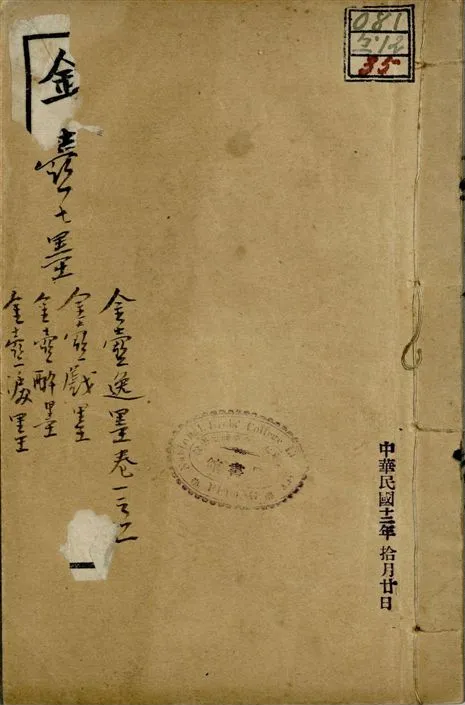 081
35
中華民國十三年 拾月廿日
金壺七墨
金壺逸墨卷一之二
金壺戲墨
金壺醉墨
金壺淚墨